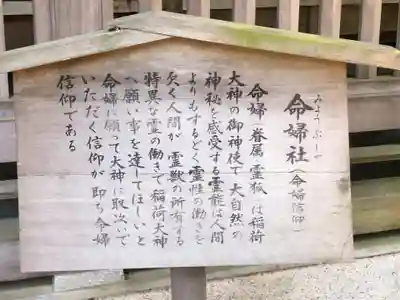 みょうぶしゃ
命婦社（命婦信仰）
命婦（眷属 霊狐）は稲荷
大神の御神使で 大自然の
神秘を感受する霊能は人間
よりもするどく霊性の働きを
欠く人間が 霊獣の所有する
特異な霊の働きで稲荷大神
へ願い事を達してほしいと
命婦に願って大神に取次いで
いただく信仰が即ち命婦
信仰である